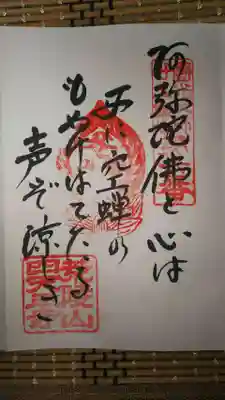 阿弥陀佛と心は
西に空蝉の
もぬけはてたる
声ぞ涼しき